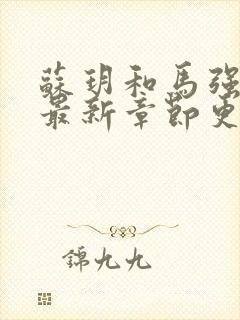 蘇玥和馬强
最新章節更
錦九九